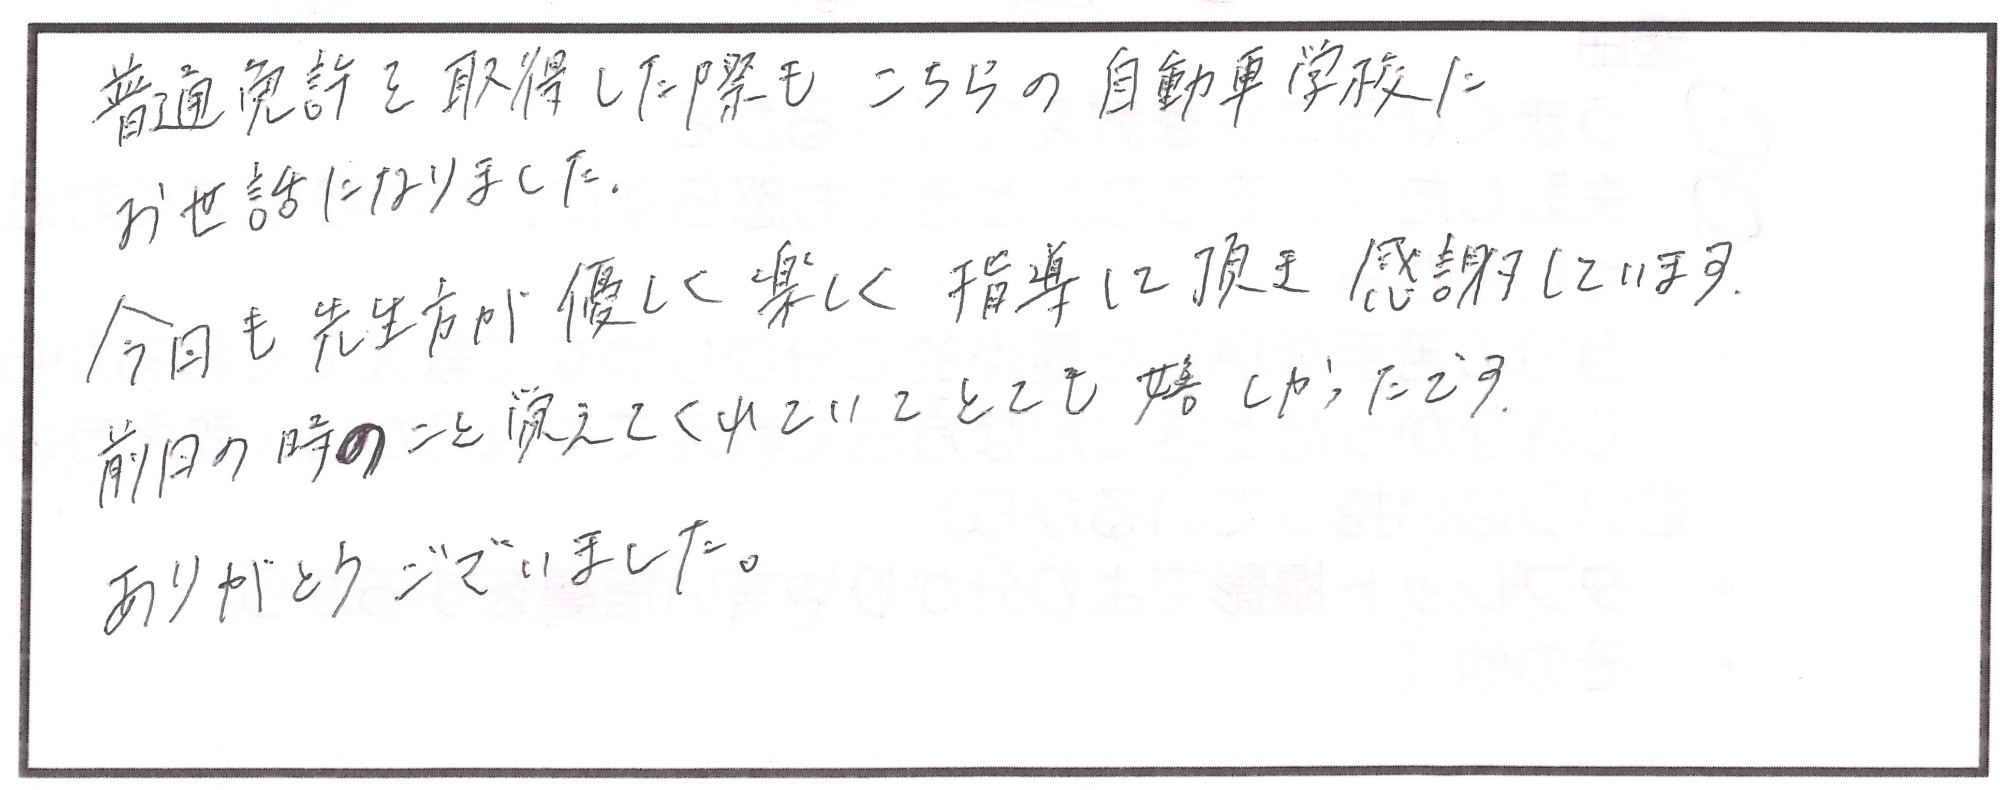 普通免許を取得した際も こちらの自動車学校に
お世話になりました.
今回も先生方が優しく楽しく指導して頂き 感謝しています.
前回の時のこと覚えてくれていてとても嬉しかったです.
ありがとうございました。